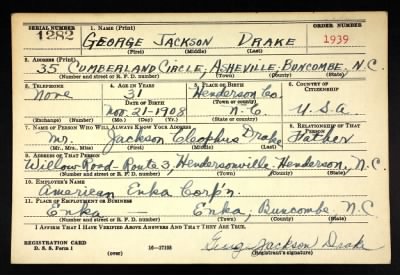 SERIAL NUMBER 1. NAME (Print) ORDER NUMBER
1282 GEORGE JACKSON DRAKE 1939
(First) (Middle) (Last)
2. ADDRESS (Print)
35 CUMBERLAND CIRCLE, ASHEVILLE, BUNCOMBE, N.C.
(Number and street or R. F. D. number) (Town) (County) (State)
3. TELEPHONE 4. AGE IN YEARS 5. PLACE OF BIRTH 6. COUNTRY OF CITIZENSHIP
None 31 Henderson Co.
DATE OF BIRTH (Town or county)
Nov. 21-1908 N.C. U.S.A
(Exchange) (Number) (Mo.) (Day) (Yr.) (State or country)
7. NAME OF PERSON WHO WILL ALWAYS KNOW YOUR ADDRESS 8. RELATIONSHIP OF THAT PERSON
Mr. Jackson Cleophus Drake Father
(Mr., Mrs., Miss) (First) (Middle) (Last)
9. ADDRESS OF THAT PERSON
Willow Road-Route 3, Hendersonville-Henderson, N.C.
(Number and street or R. F. D. number) (Town) (County) (State)
10. EMPLOYER'S NAME
American Enka Corp'n.
11. PLACE OF EMPLOYMENT OR BUSINESS
Enka — Enka, Buncombe N.C.
(Number and street or R. F. D. number) (Town) (County) (State)
I AFFIRM THAT I HAVE VERIFIED ABOVE ANSWERS AND THAT THEY ARE TRUE.
REGISTRATION CARD George Jackson Drake
D. S. S. Form 1 (over) 16-17105 (Registrant's signature)